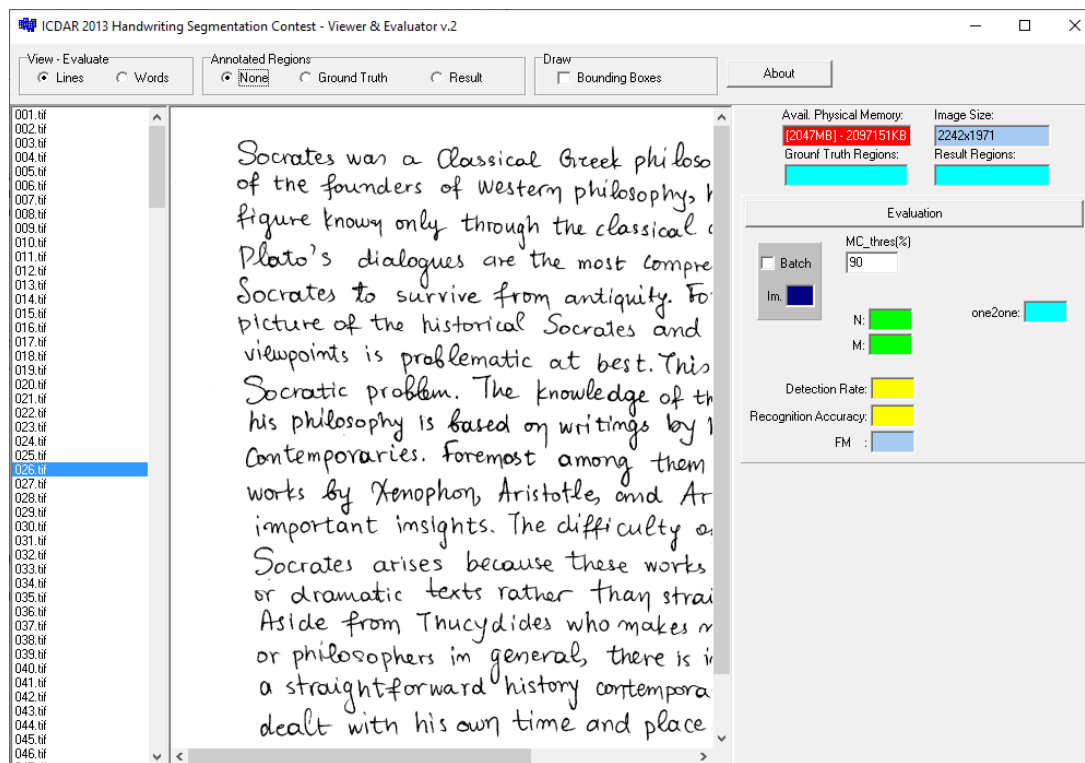 ICDAR 2013 Handwriting Segmentation Contest - Viewer & Evaluator v.2
View - Evaluate
Lines Words
Annotated Regions
None Ground Truth Result
Draw
Bounding Boxes
About
001.tif
002.tif
003.tif
004.tif
005.tif
006.tif
007.tif
008.tif
009.tif
010.tif
011.tif
012.tif
013.tif
014.tif
015.tif
016.tif
017.tif
018.tif
019.tif
020.tif
021.tif
022.tif
023.tif
024.tif
025.tif
026.tif
027.tif
028.tif
029.tif
030.tif
031.tif
032.tif
033.tif
034.tif
035.tif
036.tif
037.tif
038.tif
039.tif
040.tif
041.tif
042.tif
043.tif
044.tif
045.tif
046.tif
Socrates was a Classical Greek philoso
of the founders of Western philosophy,
figure known only through the classical
Plato's dialogues are the most compre
Socrates to survive from antiquity. Fo
picture of the historical Socrates and
viewpoints is problematic at best. This
Socratic problem. The knowledge of th
his philosophy is based on writings by
contemporaries. Foremost among them
works by Xenophon, Aristotle, and Ar
important insights. The difficulty o
Socrates arises because these works
or dramatic texts rather than strai
Aside from Thucydides who makes
or philosophers in general, there is
a straightforward history contempora
dealt with his own time and place
Avail. Physical Memory: Image Size:
[2047MB] - 2097151KB 2242x1971
Grounf Truth Regions: Result Regions:
Evaluation
MC_thres(%)
Batch 90
Im.
one2one:
N:
M:
Detection Rate:
Recognition Accuracy:
FM :